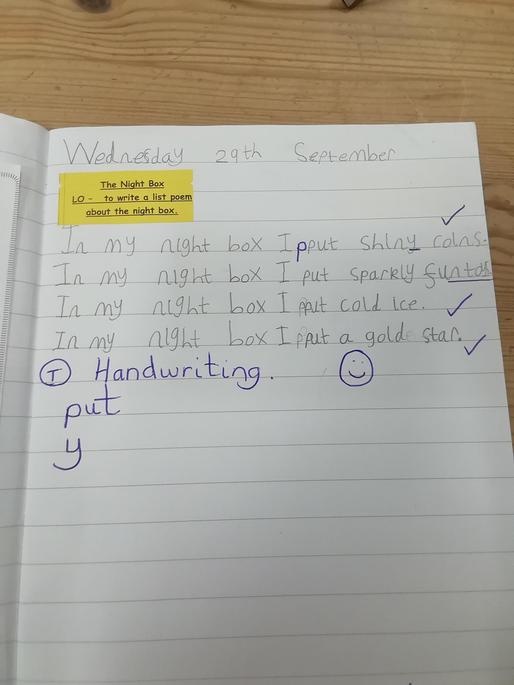 Wednesday 29th September
The Night Box
LO - to write a list poem
about the night box.
In my night box I pput shiny coins.
In my night box I put sparkly funtas
In my night box I put cold ice.
In my night box I put a gold star.
T Handwriting.
put
y